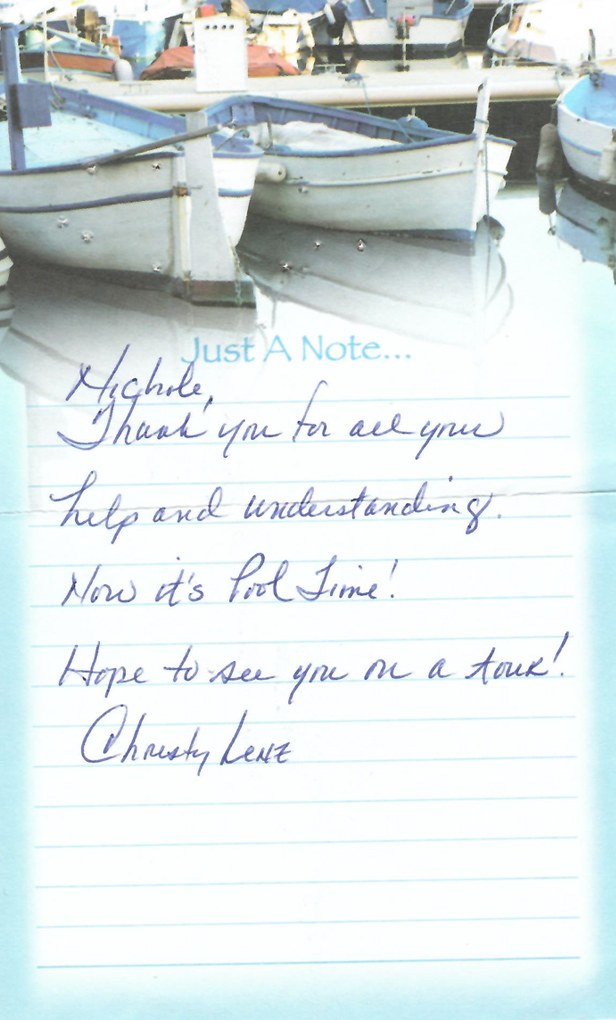 Just A Note...
Nichole,
Thank you for all your
help and understanding.
Now it's Pool Time!
Hope to see you on a tour!
Christy Lenz